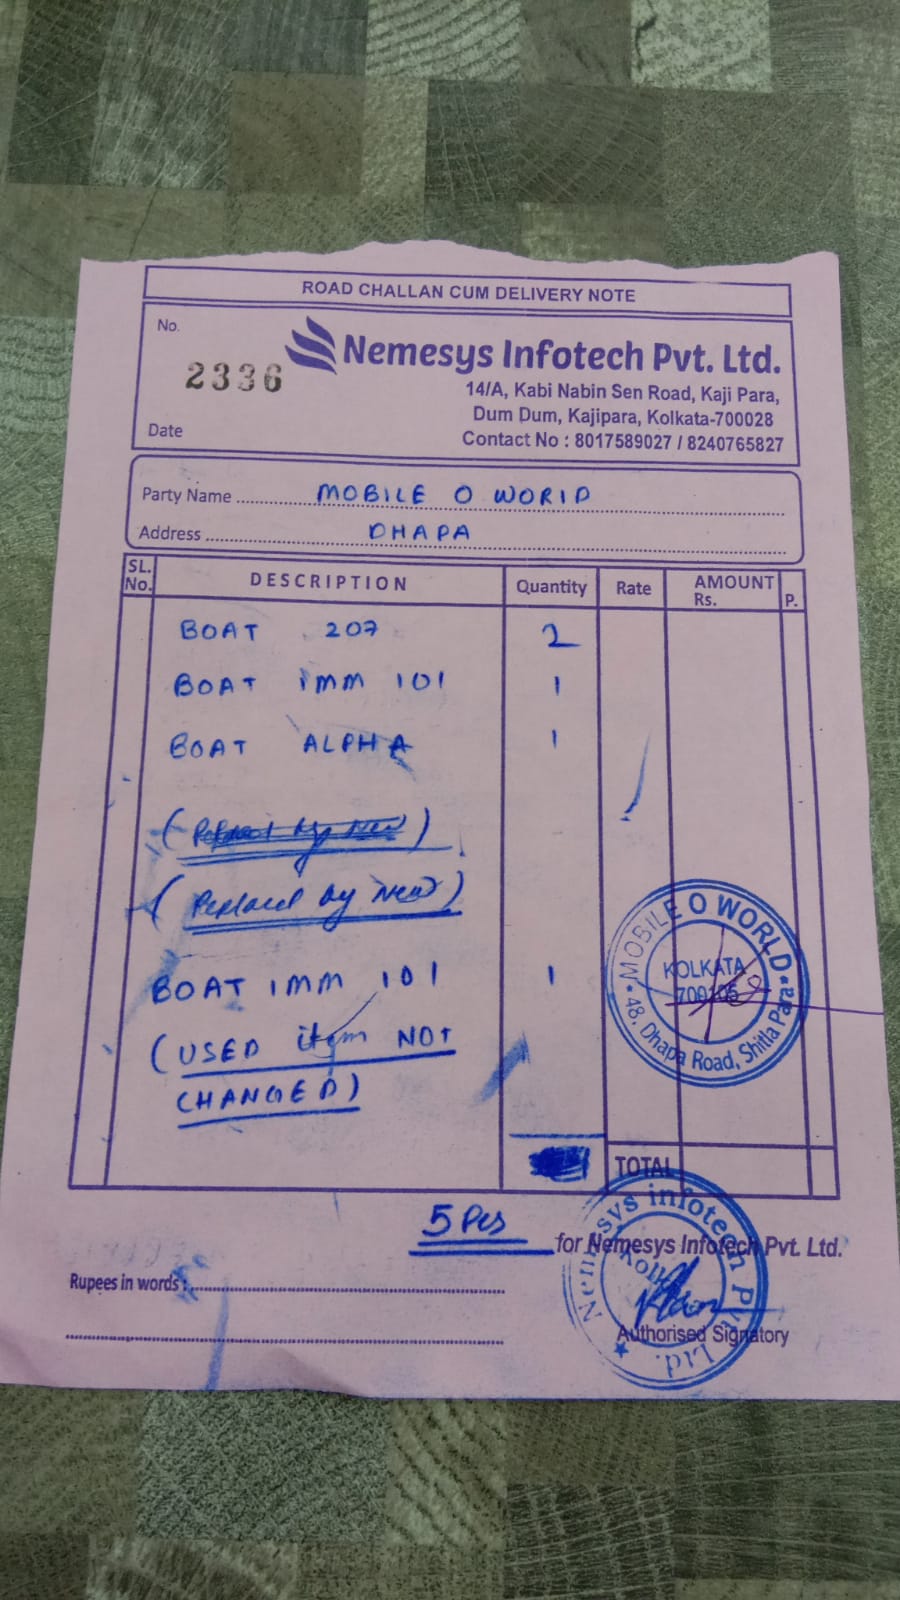 ROAD CHALLAN CUM DELIVERY NOTE
No.
2336
Nemesys Infotech Pvt. Ltd.
14/A, Kabi Nabin Sen Road, Kaji Para,
Dum Dum, Kajipara, Kolkata-700028
Date
Contact No : 8017589027 / 8240765827
Party Name MOBILE O WORLD
Address DHAPA
SL. No. DESCRIPTION Quantity Rate AMOUNT Rs. P.
BOAT 207 2
BOAT imm 101 1
BOAT ALPHA 1
(Replaced by New)
BOAT imm 101 1
(USED item NOT
CHANGED)
MOBILE O WORLD
KOLKATA
700105
48, Dhapa Road, Shitla Para
TOTAL
5 Pcs
for Nemesys Infotech Pvt. Ltd.
Nemesys infotech Pvt. Ltd.
Rupees in words :
Authorised Signatory